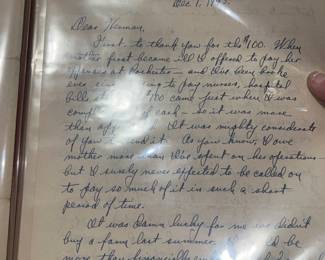 Dec. 7, 19
Dear Herman,
First, to thank you for the $100. When
mother first became ill I offered to pay her
expenses at Rochester – and I've been broke
ever to pay nurses, hospital
bills It came just where I was
of cash – so it was more
than It was mighty considerate
of you it. As you know, I owe
mother more than I've spent on her operations –
but I surely never expected to be called on
to pay so much of it in such a short
period of time.
It was damn lucky for me we didn't
buy a farm last summer. I'd be
more than financially